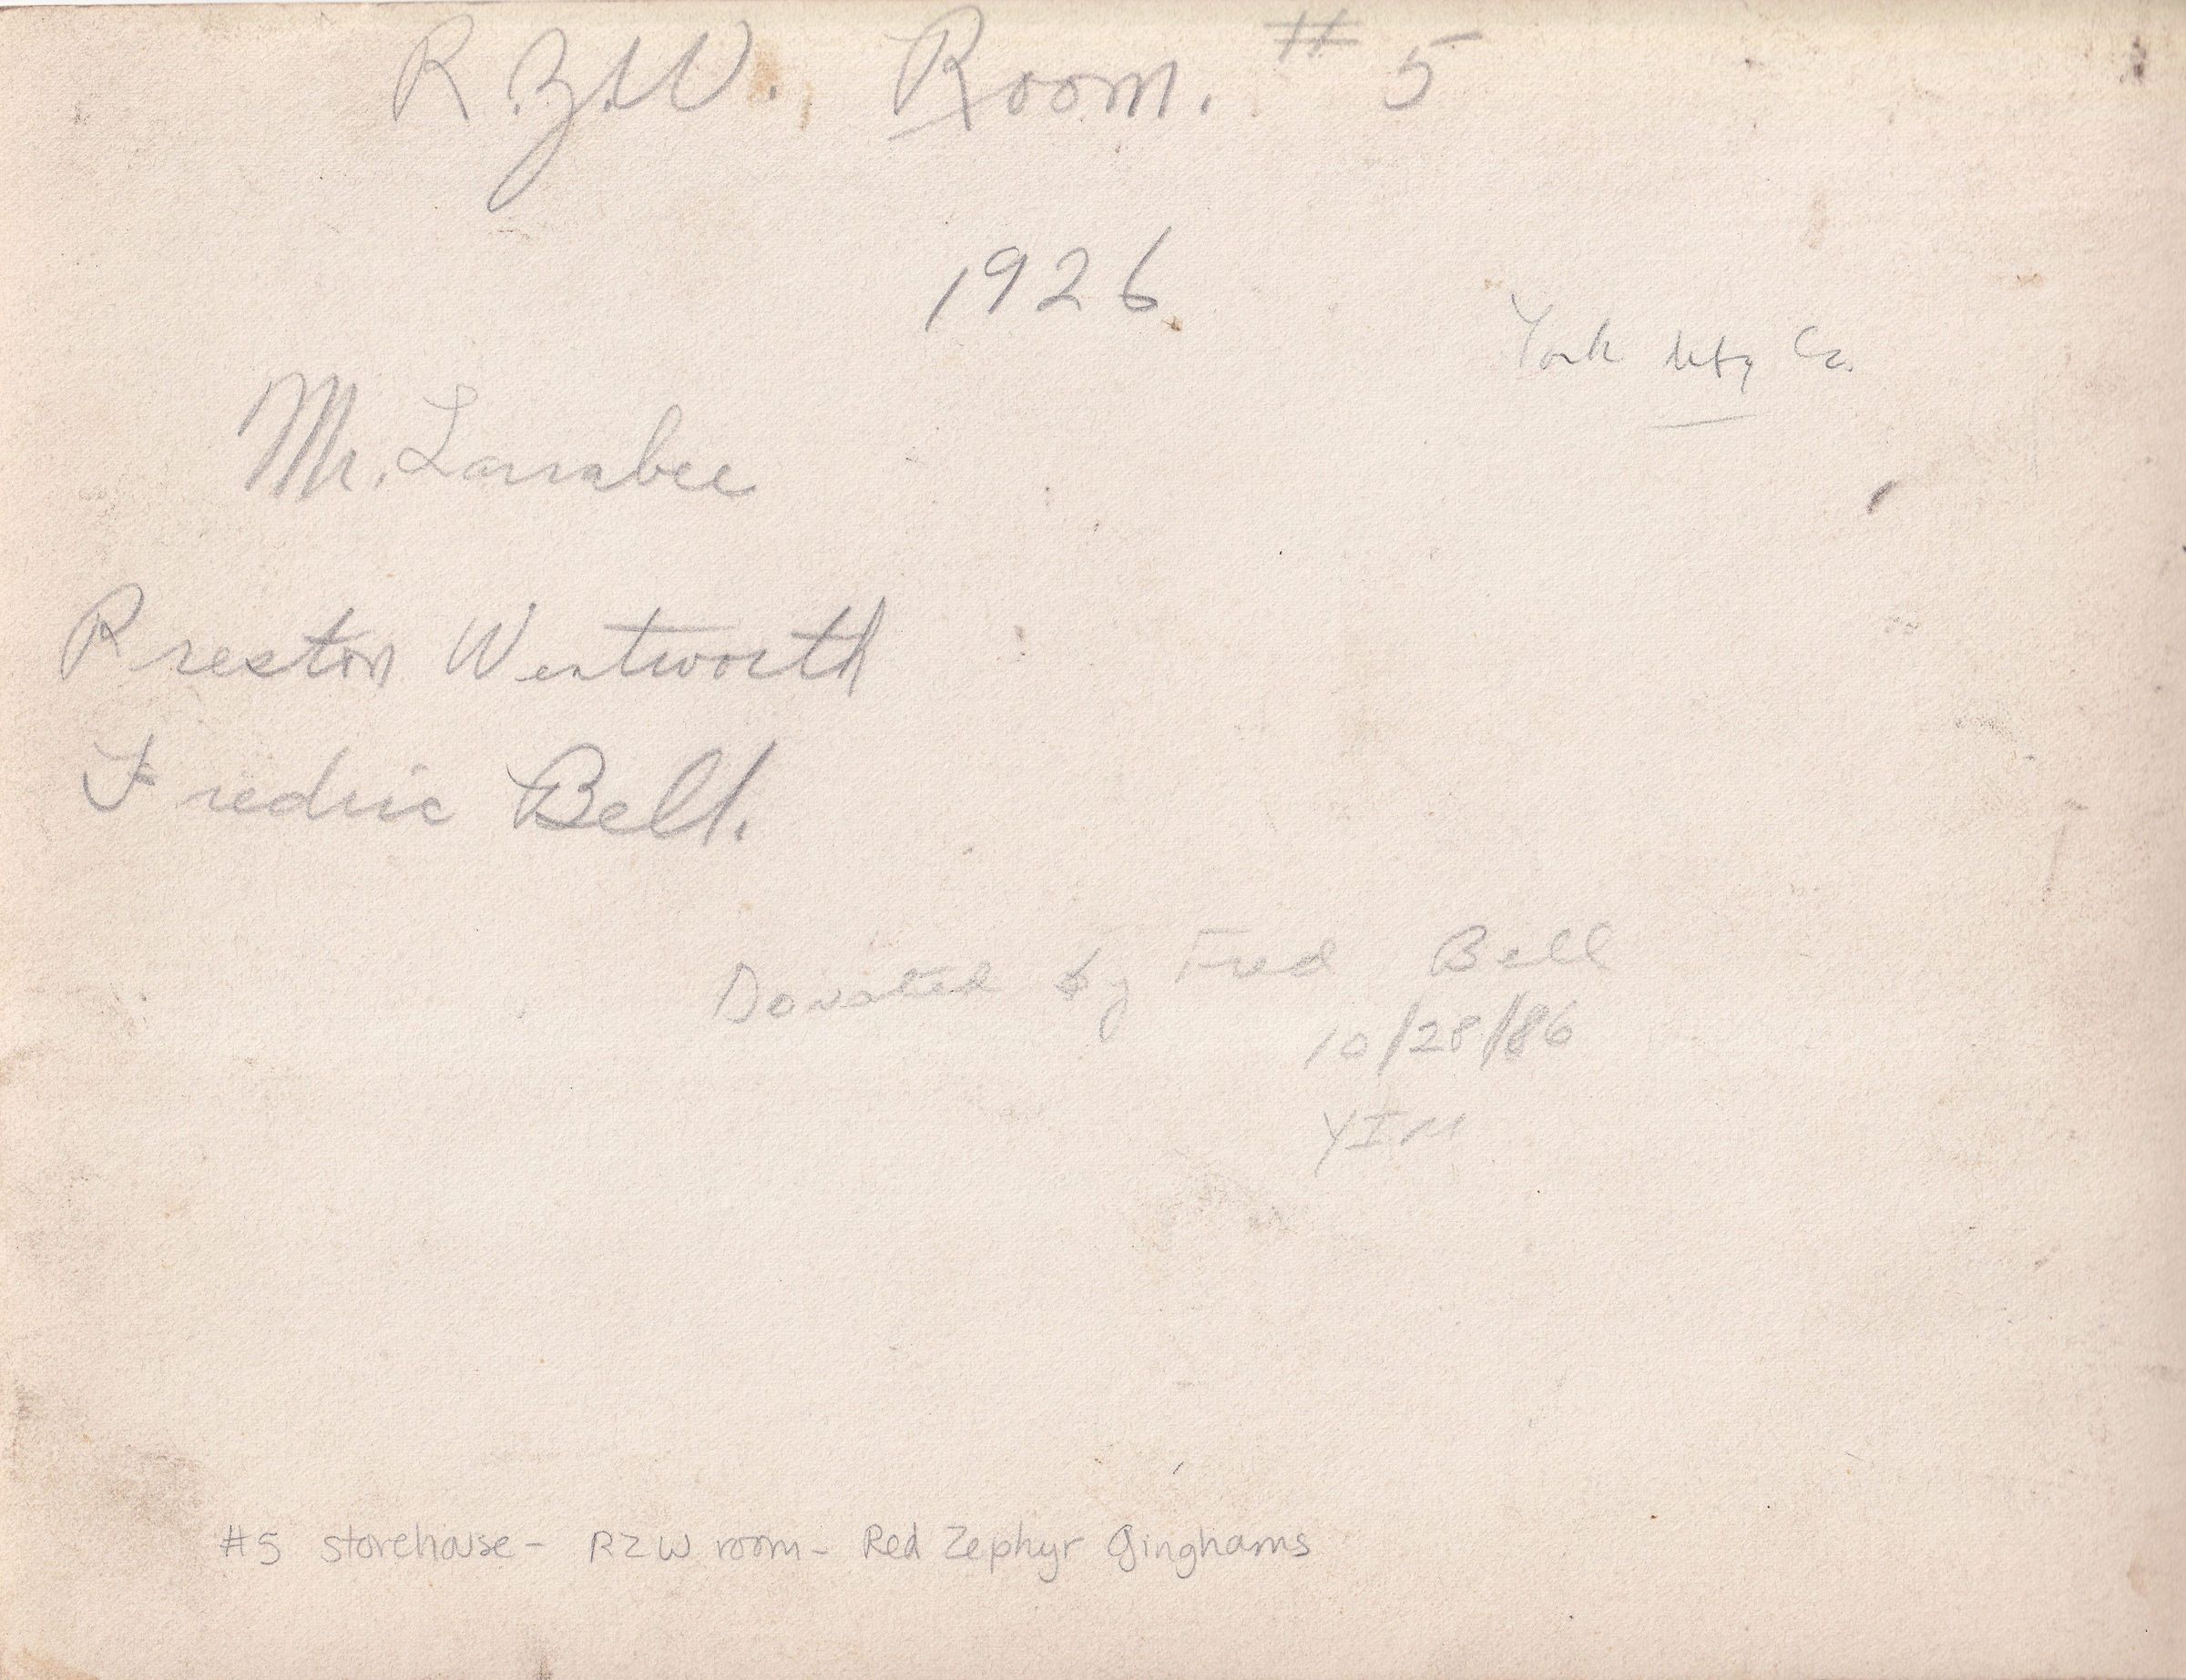 R.Z.W. Room. # 5
1926
York Mfg Co.
Mr. Larrabee
Preston Wentworth
Fredric Bell.
Donated by Fred Bell
10/28/86
YIM
#5 storehouse - RZW room - Red Zephyr Ginghams